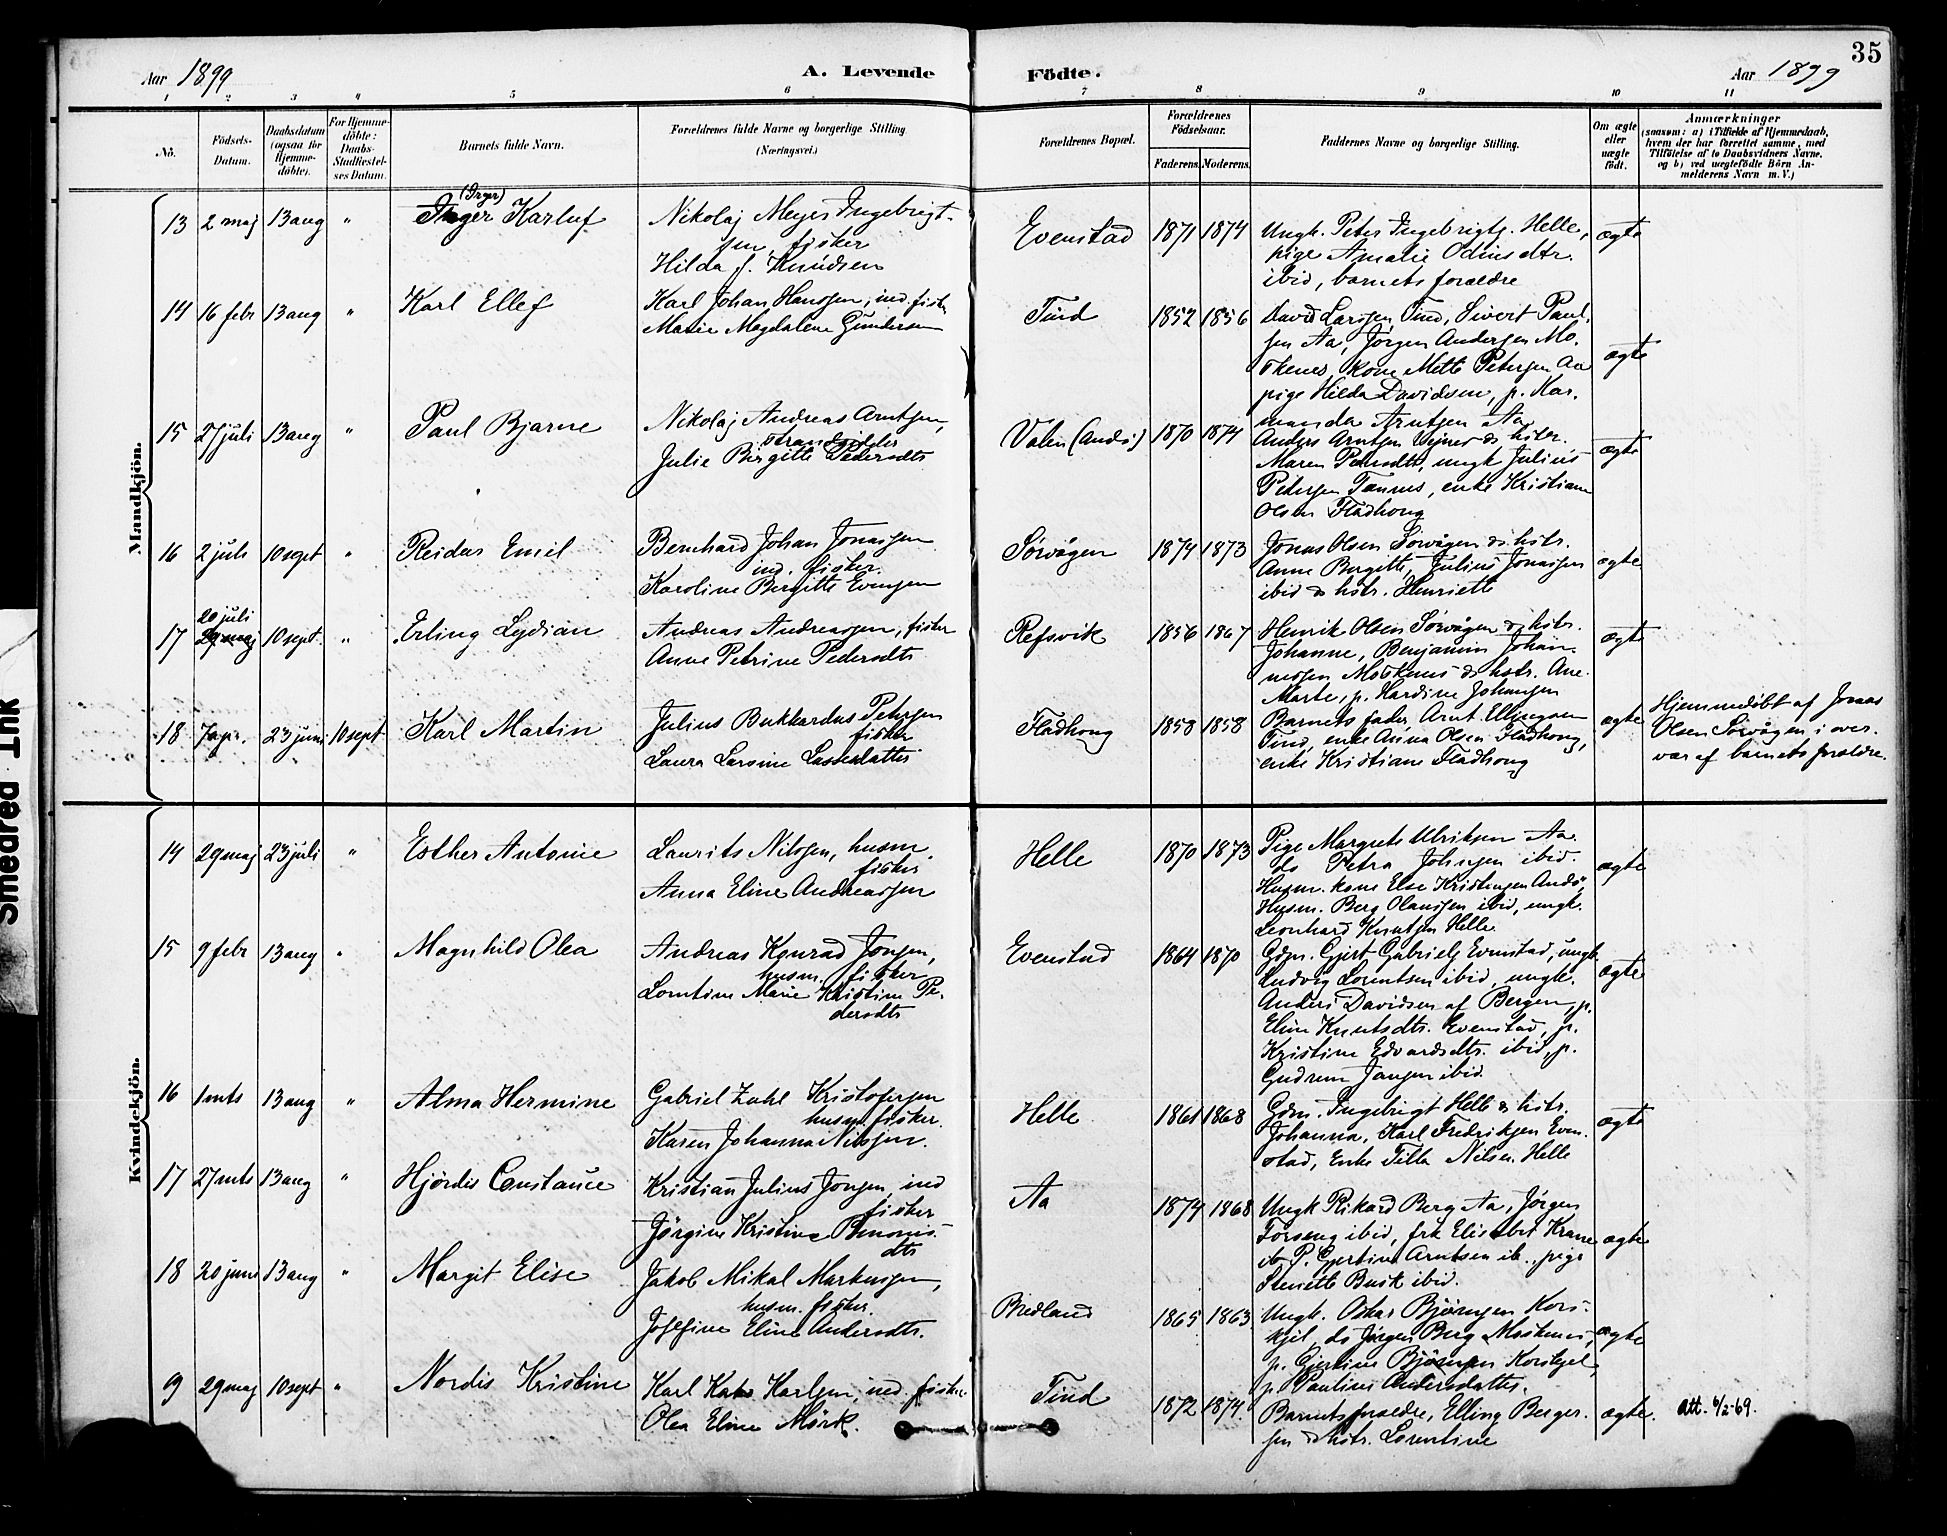 35
Aar 1899
A. Levende Födte.
Aar 1899
1 2 3 4 5 6 7 8 9 10 11
No.
Födsels-Datum.
Daabsdatum (ogsaa for Hjemme-döbte).
For Hjemme-döbte: Daabs-Stadfæstel-ses Datum.
Barnets fulde Navn.
Forældrenes fulde Navne og borgerlige Stilling
(Næringsvei.)
Forældrenes Bopæl.
Forældrenes Födselsaar.
Faderens. Moderens.
Faddernes Navne og borgerlige Stilling.
Om ægte eller uægte födt.
Anmærkninger
(saasom: a) i Tilfælde af Hjemmedaab,
hvem der har forrettet samme, med
Tilföielse af to Daabsvidners Navne.
og b) ved uægtefödte Börn An-
melderens Navn m. V.)
Mandkjön.
13 2 maj 13 aug " Inger Karluf
(Inger)
Nikolaj Meyer Ingebrigt-
sen, fisker
Hilda f. Knudsen
Evenstad 1871 1874
Ungk. Peter Ingebrigts. Helle,
pige Amalie Odinsdtr.
ibid, barnets forældre
ægte
14 16 febr 13 aug " Karl Ellef
Karl Johan Hanssen, ind. fisker
Marie Magdalene Gundersen
Tind 1852 1856
David Larssen Tind, Sivert Paul-
sen Aa, Jørgen Andersen Mo-
skenes, kone Mette Petersen Aa
pige Hilda Davidsen, p. Kar-
ægte
manda Arntsen Aa
15 27 juli 13 aug " Paul Bjarne
Nikolaj Andreas Arntsen,
strandsidder
Julie Birgitte Pedersdtr
Valen (Andø) 1870 1874
Anders Arntsen & hstr.
Maren Pedersdtr, ungk Julius
Petersen Tennes, enke Kristiane
Olsen Fladhong
ægte
16 2 juli 10 sept " Reidar Emil
Bernhard Johan Jonassen
ind. fisker.
Karoline Bergitte Evensen
Sørvågen 1874 1873
Jonas Olsen Sørvågen & hstr.
Anne Bergitte, Julius Jonassen
ibid & hstr. Henriette
ægte
20 juli
17 29 maj 10 sept. " Erling Lydian
Andreas Andreassen, fisker
Anne Petrine Pedersdtr
Refsvik 1856 1867
Henrik Olsen Sørvågen & hstr.
Johanne, Benjamin Johan-
nessen Moskenes & hstr. Ane
Marte, p. Hardine Johansen
ægte
18 7 apr. 23 juni 10 sept Karl Martin
Julius Bukkardus Petersen
fisker
Laura Larsine Lassesdatter
Fladhong 1858 1858
Barnets fader, Arnt Ellingsen
Tind, enke Anna Olsen Fladhong,
enke Kristiane Fladhong
ægte
Hjemmedøbt af Jonas
Olsen Sørvågen i over-
vær af barnets forældre.
Kvindekjön.
14 29 maj 23 juli " Esther Antonie
Laurits Nilssen, husm.
fisker
Anna Eline Andreassen
Helle 1870 1873
Pige Margrete Ulriksen Aa
do Petra Johnsen ibid.
Husm. kone Else Kristensen Andø,
Husm. Berg Olaussen ibid, ungk.
Leonhard Knutsen Helle
ægte
15 9 febr 13 aug " Magnhild Olea
Andreas Konrad Jonsen,
husm. fisker
Lorntine Marie Kristine Pe-
dersdtr
Evenstad 1864 1870
Gdm. Gjert Gabriels. Evenstad, ungk
Ludvig Lorentsen ibid, ungk.
Anders Davidsen af Bergen, p.
Eline Knutsdtr. Evenstad, p.
Kristine Edvardsdtr. ibid, p.
Gudrun Jansen ibid
ægte
16 1 mts 13 aug " Alma Hermine
Gabriel Zahl Kristofersen
husm. fisker.
Karen Johanna Nilssen.
Helle 1861 1868
Gdm. Ingebrigt Helle & hstr.
Johanna, Karl Fredriksen Even-
stad, Enke Tilla Nilsen Helle
ægte
17 27 mts 13 aug " Hjördis Constance
Kristian Julius Jonsen, ind
fisker
Jörgine Kristine Benonis-
dtr
Aa 1874 1868
Ungk Rikard Berg Aa, Jørgen
Forseng ibid, frk Elisabet Krane
ib P. Gjertine Arntsen ib., pige
Stenette Busk ibid.
ægte
18 20 juni 13 aug " Margit Elise
Jakob Mikal Markussen,
husm. fisker.
Josefine Eline Andersdtr.
Bredland 1865 1863
Ungk. Oskar Bjørnsen Kors-
kjel, do Jørgen Berg Moskenes,
p. Gjertine Bjørnsen Korskjel,
p. Pauline Andersdatter.
ægte
9 29 maj 10 sept " Nordis Kristine
Karl Karlsen, ind. fisker
Olea Eline Mörk.
Tind 1872 1874.
Barnets forældre, Elling Berger-
sen & hstr. Lorentine
ægte. Att. 6/2-69.
Smedred Ink